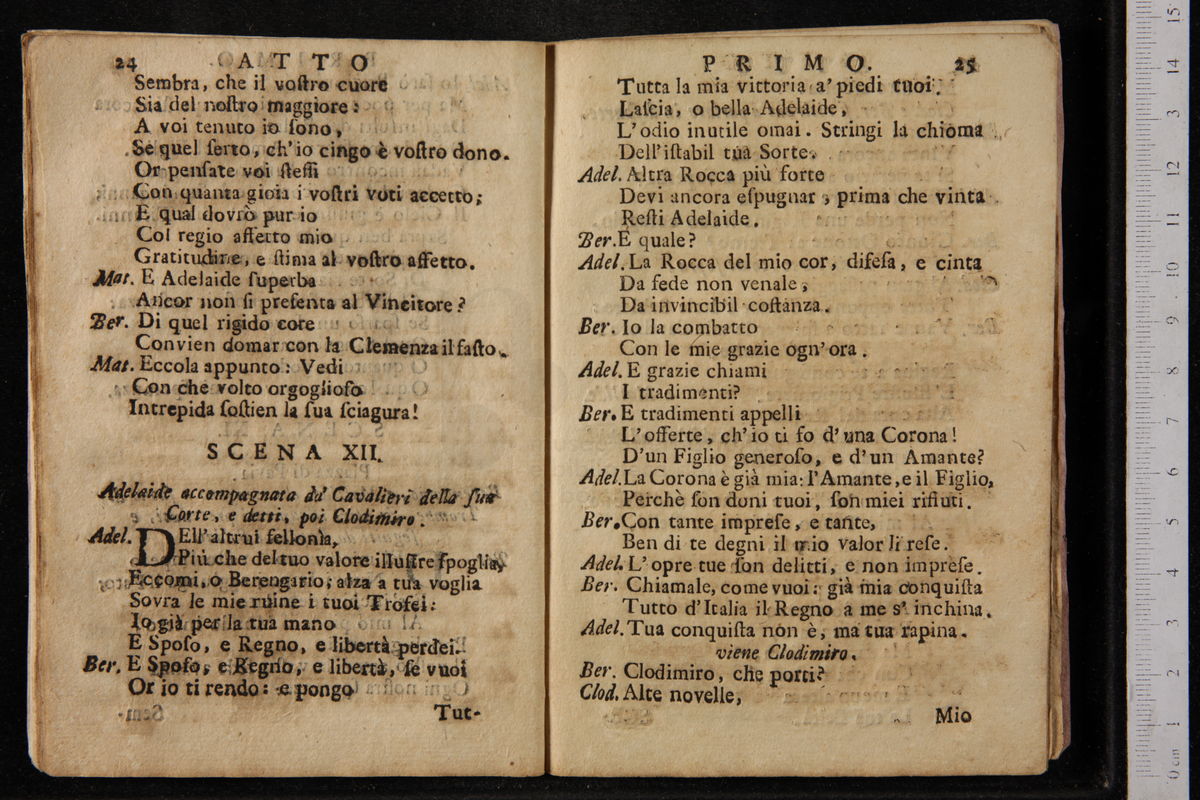 24 ATTO
Sembra, che il voſtro cuore
Sia del noſtro maggiore:
A voi tenuto io ſono,
Se quel ſerto, ch'io cingo è voſtro dono.
Or penſate voi ſteſſi
Con quanta gioia i voſtri voti accetto;
E qual dovrò pur io
Col regio affetto mio
Gratitudine, e ſtima al voſtro affetto.
Mat. E Adelaide ſuperba
Ancor non ſi preſenta al Vincitore?
Ber. Di quel rigido core
Convien domar con la Clemenza il faſto.
Mat. Eccola appunto: Vedi
Con che volto orgoglioſo
Intrepida ſoſtien la ſua ſciagura!
SCENA XII.
Adelaide accompagnata da' Cavalieri della ſua
Corte, e detti, poi Clodimiro.
Adel. DEll'altrui fellonia,
Più che del tuo valore illuſtre ſpoglia,
Eccomi, o Berengario; alza a tua voglia
Sovra le mie ruine i tuoi Trofei:
Io già per la tua mano
E Spoſo, e Regno, e libertà perdei.
Ber. E Spoſo, e Regno, e libertà, ſe vuoi
Or io ti rendo: e pongo
Tut-
PRIMO. 25
Tutta la mia vittoria a' piedi tuoi.
Laſcia, o bella Adelaide,
L'odio inutile omai. Stringi la chioma
Dell'iſtabil tua Sorte.
Adel. Altra Rocca più forte
Devi ancora eſpugnar, prima che vinta
Reſti Adelaide.
Ber. E quale?
Adel. La Rocca del mio cor, difeſa, e cinta
Da fede non venale,
Da invincibil coſtanza.
Ber. Io la combatto
Con le mie grazie ogn'ora.
Adel. E grazie chiami
I tradimenti?
Ber. E tradimenti appelli
L'offerte, ch'io ti fo d'una Corona!
D'un Figlio generoſo, e d'un Amante?
Adel. La Corona è già mia: l'Amante, e il Figlio,
Perchè ſon doni tuoi, ſon miei rifiuti.
Ber. Con tante impreſe, e tante,
Ben di te degni il mio valor li reſe.
Adel. L'opre tue ſon delitti, e non impreſe.
Ber. Chiamale, come vuoi: già mia conquiſta
Tutto d'Italia il Regno a me s'inchina.
Adel. Tua conquiſta non è, ma tua rapina.
viene Clodimiro.
Ber. Clodimiro, che porti?
Clod. Alte novelle,
Mio
0 cm 1 2 3 4 5 6 7 8 9 10 11 12 13 14 15